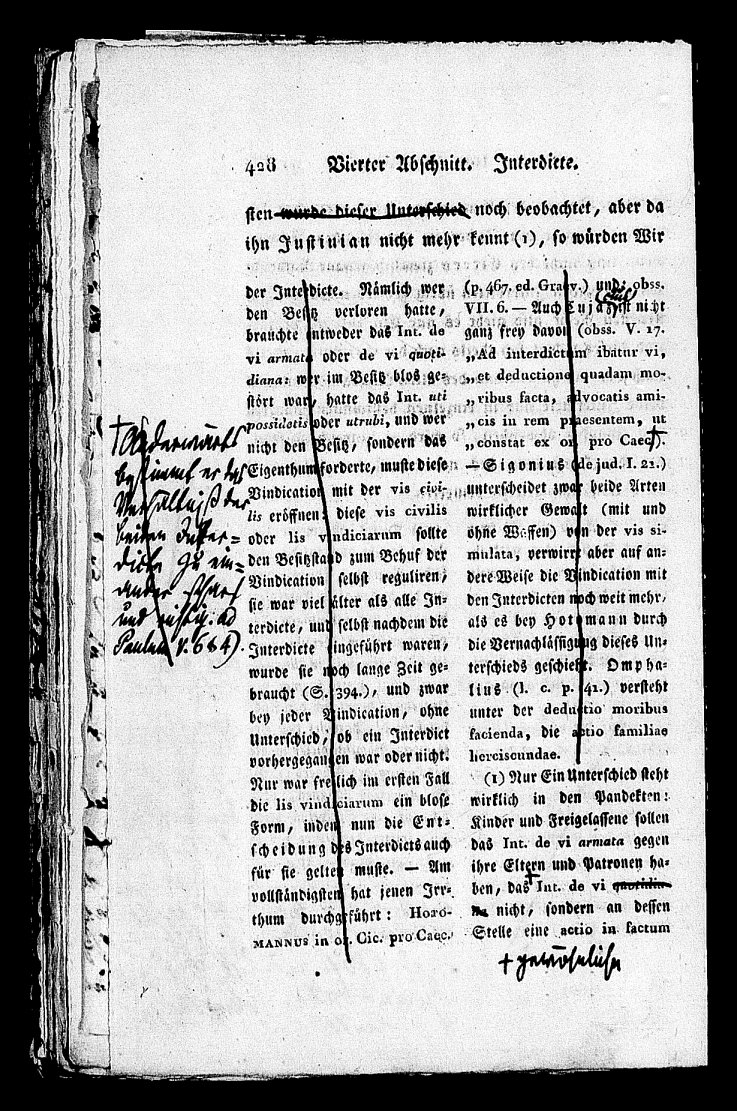 428 Vierter Abschnitt. Interdicte.
sten wurde dieser Unterschied noch beobachtet, aber da
ihn Justinian nicht mehr kennt (1), so würden Wir
der Interdicte. Nämlich wer
den Besitz verloren hatte,
brauchte entweder das Int. de
vi armata oder de vi quoti-
diana: wer im Besitz blos ge-
stört war, hatte das Int. uti
possidetis oder utrubi, und wer
nicht den Besitz, sondern das
Eigenthum forderte, muste diese
Vindication mit der vis civi-
lis eröffnen: diese vis civilis
oder lis vindiciarum sollte
den Besitzstand zum Behuf der
Vindication selbst reguliren,
sie war viel älter als alle In-
terdicte, und selbst nachdem die
Interdicte eingeführt waren,
wurde sie noch lange Zeit ge-
braucht (S. 394.), und zwar
bey jeder Vindication, ohne
Unterschied, ob ein Interdict
vorhergegangen war oder nicht.
Nur war freilich im ersten Fall
die lis vindiciarum ein blose
Form, indem nun die Ent-
scheidung des Interdicts auch
für sie gelten muste. — Am
vollständigsten hat jenen Irr-
thum durchgeführt: Hoto-
mannus in or. Cic. pro Caec.
(p. 467. ed. Graev.) und obss.
VII. 6. — Auch Cujaz ist nicht
auch
ganz frey davon (obss. V. 17.
„Ad interdictum ibatur vi,
„et deductione quadam mo-
„ribus facta, advocatis ami-
„cis in rem praesentem, ut
„constat ex or. pro Caec.“). †
— Sigonius (de jud. I. 21.)
unterscheidet zwar beide Arten
wirklicher Gewalt (mit und
ohne Waffen) von der vis si-
mulata, verwirrt aber auf an-
dere Weise die Vindication mit
den Interdicten noch weit mehr,
als es bey Hotomann durch
die Vernachlässigung dieses Un-
terschieds geschieht. Ompha-
lius (l. c. p. 41.) versteht
unter der deductio moribus
facienda, die actio familiae
herciscundae.
(1) Nur Ein Unterschied steht
wirklich in den Pandekten:
Kinder und Freigelassene sollen
das Int. de vi armata gegen
ihre Eltern und Patronen ha-
ben, das † Int. de vi quotidia-
na nicht, sondern an dessen
Stelle eine actio in factum
† gewöhnliche
† Anderwärts
bestimmt er das
Verhältniß der
beiden Inter-
dicte zu ein-
ander scharf
und richtig. ad
Paulum V. 6 § 4).